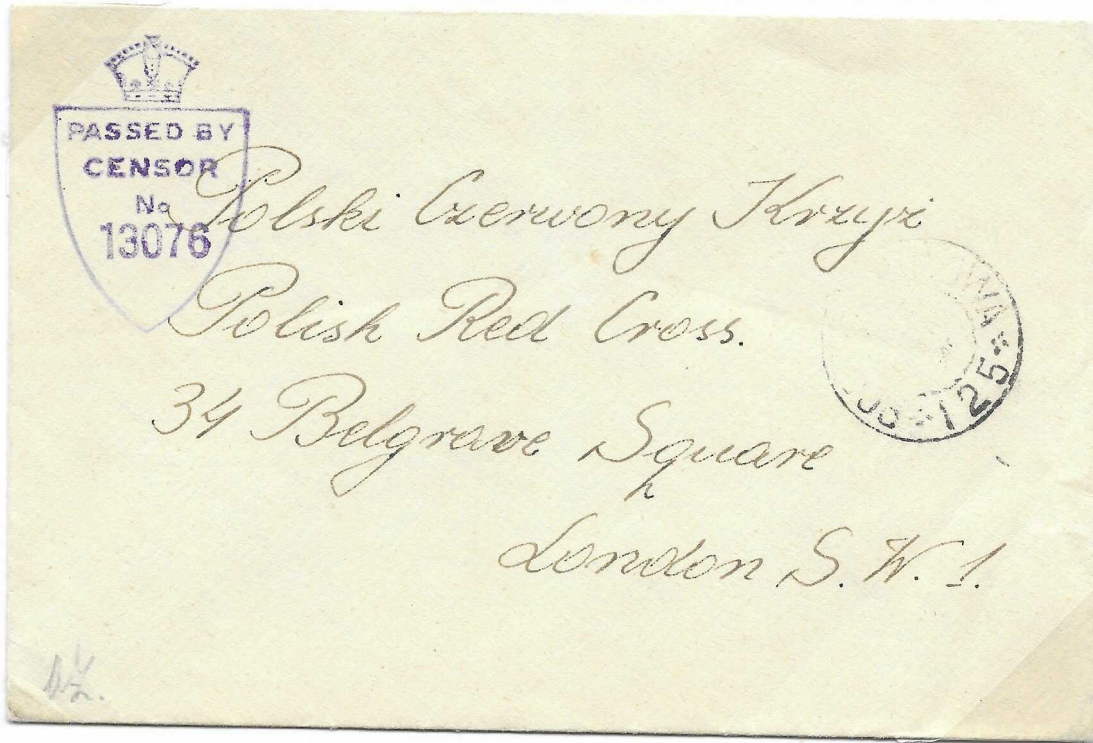 PASSED BY
CENSOR
No
13076
Polski Czerwony Krzyż
Polish Red Cross.
34 Belgrave Square
London S. W. 1.
125